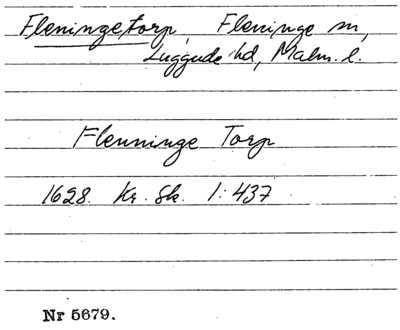 Fleningetorp, Fleninge sn,
Luggude hd, Malm. l.
Flenninge Torp
1628. Kr. Sk. 1:437
Nr 5679.